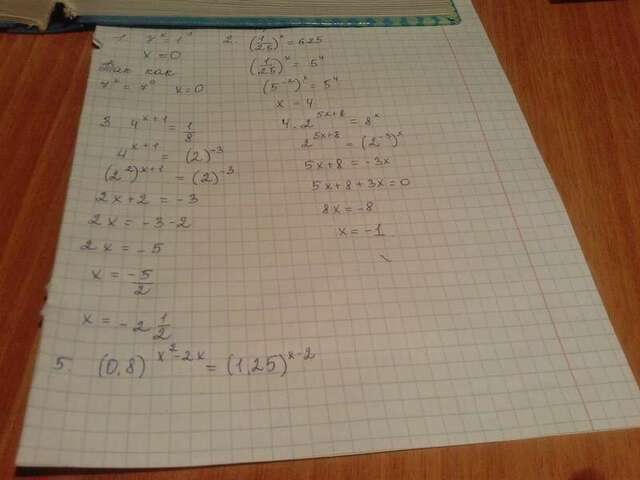 1. 7ˣ = 1ˣ
x = 0
Так как
7ˣ = 7⁰ x = 0
2. (1/25)ˣ = 625
(1/25)ˣ = 5⁴
(5⁻ˣ)ˣ = 5⁴
x = 4
3 4ˣ⁺¹ = 1/8
4ˣ⁺¹ = (2)⁻³
(2²)ˣ⁺¹ = (2)⁻³
2x + 2 = -3
2x = -3 - 2
2x = -5
x = -5/2
x = -2 1/2
4. 2⁵ˣ⁺⁸ = 8ˣ
2⁵ˣ⁺⁸ = (2⁻³)ˣ
5x + 8 = -3x
5x + 8 + 3x = 0
8x = -8
x = -1
5. (0,8)^(x²-2x) = (1,25)ˣ⁻²